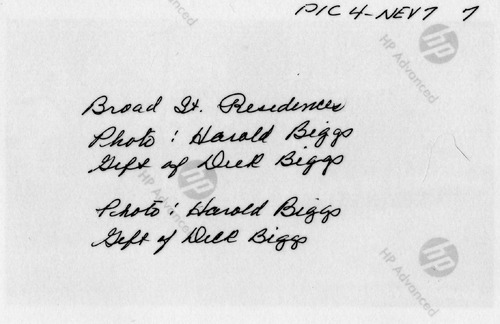 PIC 4-NEV7 7
Broad St. Residences
Photo: Harold Biggs
Gift of Dick Biggs
Photo: Harold Biggs
Gift of Dick Biggs
hp
HP Advanced
hp
HP Advanced
hp
HP Advanced